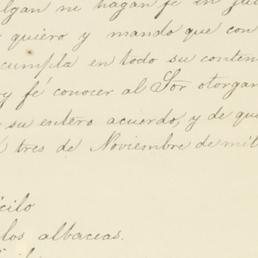 algan ni hagan fe en jui
quiero y mando que con
cumpla en todo su conteni
y fé conocer al Sor otorgan
su entero acuerdo, y de que
tres de Noviembre de mil
cilo
los albaceas.